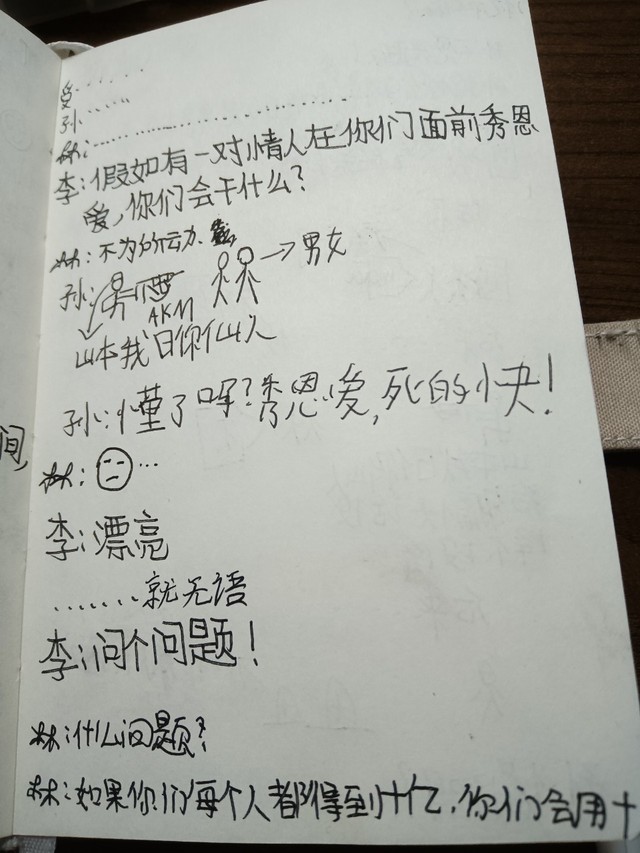 爱.......
孙......
林:..............................
李:假如有一对情人在你们面前秀恩
爱,你们会干什么?
林:不为所云力、
→男女
孙:
AKM
山本我日你仙人
孙:懂了吗?秀恩爱,死的快!
间,
林:...
李:漂亮
.......就无语
李:问个问题!
林:什么问题?
林:如果你们每个人都得到十亿,你们会用十